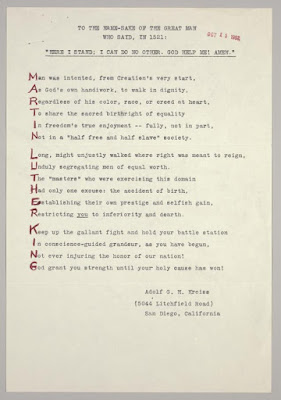 TO THE NAME-SAKE OF THE GREAT MAN
WHO SAID, IN 1521:
OCT 15 1962
"HERE I STAND; I CAN DO NO OTHER. GOD HELP ME! AMEN."
Man was intented, from Creation's very start,
As God's own handiwork, to walk in dignity,
Regardless of his color, race, or creed at heart,
To share the sacred birthright of equality
In freedom's true enjoyment -- fully, not in part,
Not in a "half free and half slave" society.
Long, might unjustly walked where right was meant to reign,
Unduly segregating men of equal worth.
The "masters" who were exercising this domain
Had only one excuse: the accident of birth,
Establishing their own prestige and selfish gain,
Restricting you to inferiority and dearth.
Keep up the gallant fight and hold your battle station
In conscience-guided grandeur, as you have begun,
Not ever injuring the honor of our nation!
God grant you strength until your holy cause has won!
Adolf C. R. Kreiss
(5044 Litchfield Road)
San Diego, California